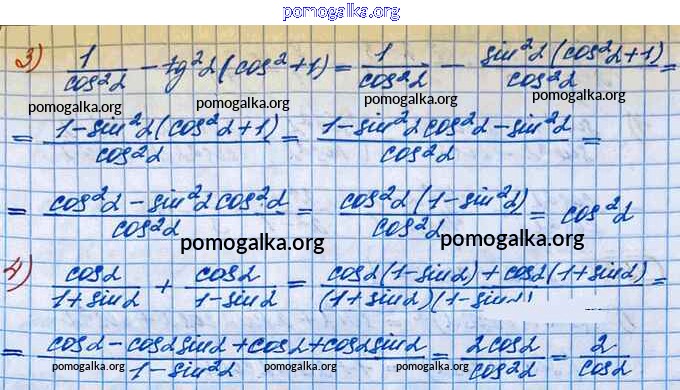 pomogalka.org
3) 1/cos²α − tg²α(cos²+1) = 1/cos²α − sin²α(cos²α+1)/cos²α =
pomogalka.org pomogalka.org pomogalka.org
= (1−sin²α(cos²α+1))/cos²α = (1−sin²α cos²α−sin²α)/cos²α =
= (cos²α − sin²α cos²α)/cos²α = cos²α(1−sin²α)/cos²α = cos²α
pomogalka.org pomogalka.org
4) cosα/(1+sinα) + cosα/(1−sinα) = (cosα(1−sinα)+cosα(1+sinα))/((1+sinα)(1−sinα)) =
= (cosα−cosα sinα+cosα+cosα sinα)/(1−sin²α) = 2cosα/cos²α = 2/cosα
pomogalka.org pomogalka.org pomogalka.org pomogalka.org